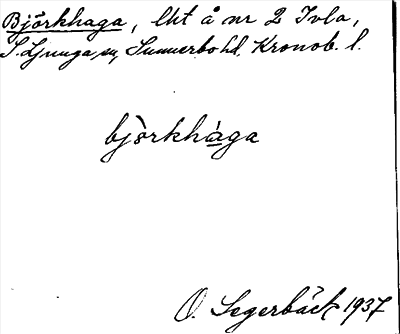 Björkhaga, lht å nr 2 Ivla,
S. Ljunga sn, Sunnerbo hd, Kronob. l.
bjö̀rkhàga
O. Segerbäck 1937